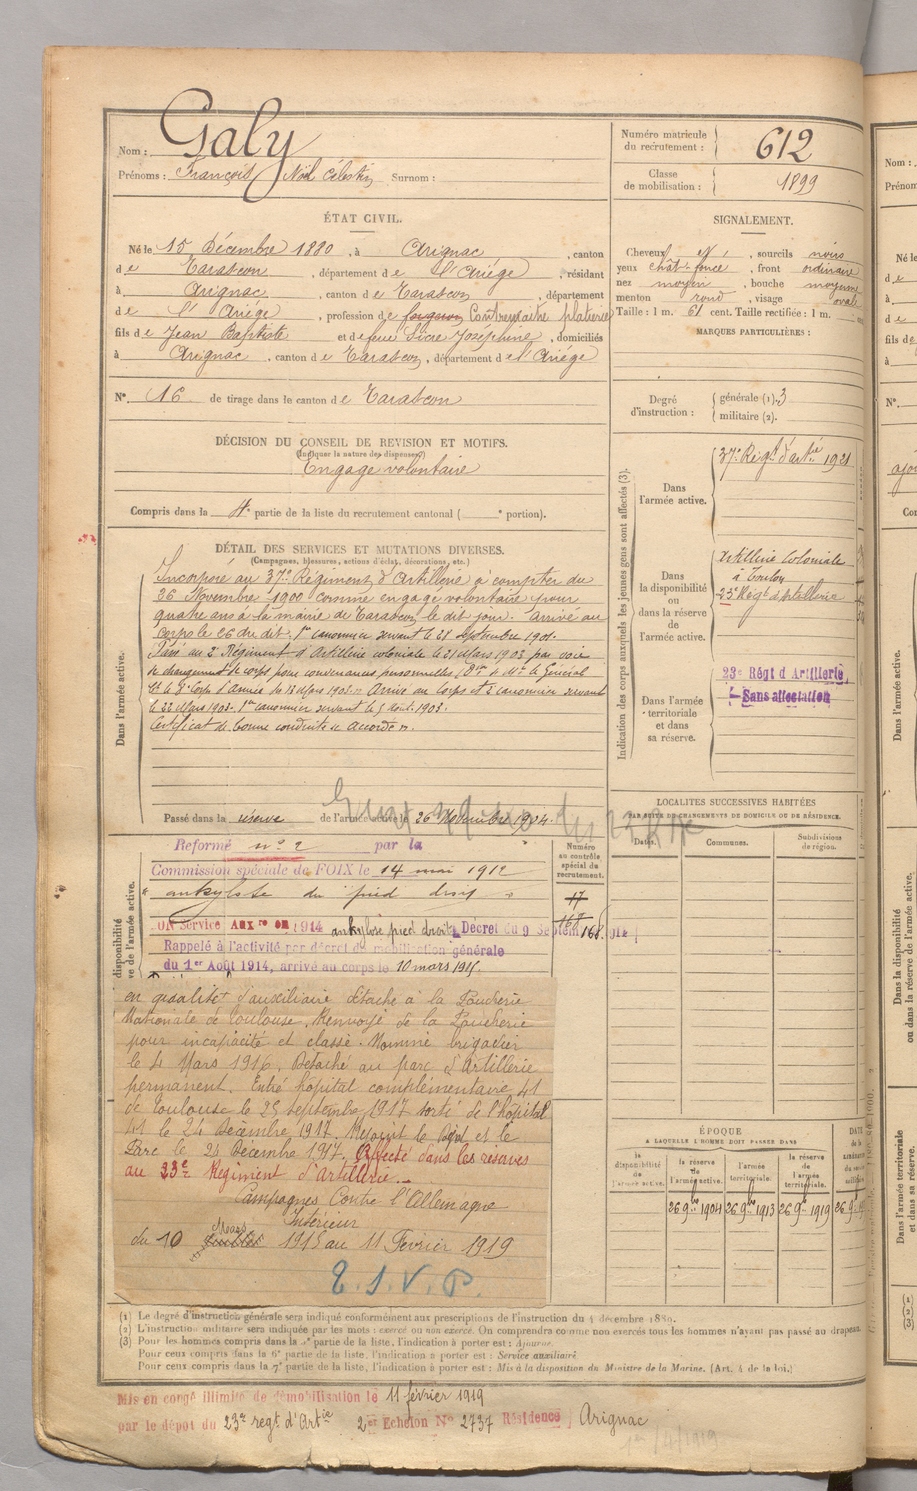 Nom : Galy
Prénoms : François Noël Célestin Surnom :
Numéro matricule du recrutement : 612
Classe de mobilisation : 1899
ÉTAT CIVIL.
Né le 15 Décembre 1880, à Arignac, canton
de Tarascon, département de l'Ariége, résidant
à Arignac, canton de Tarascon, département
de l'Ariége, profession de forgeron Contremaître platrier
fils de Jean Baptiste et de feue Sicre Joséphine, domiciliés
à Arignac, canton de Tarascon, département de l'Ariége
N° 16 de tirage dans le canton de Tarascon
SIGNALEMENT.
Cheveux N, sourcils noirs
yeux chât. foncé, front ordinaire
nez moyen, bouche moyenne
menton rond, visage ovale
Taille : 1 m. 61 cent. Taille rectifiée : 1 m.
MARQUES PARTICULIÈRES :
Degré d'instruction : générale (1). 3
militaire (2).
DÉCISION DU CONSEIL DE REVISION ET MOTIFS.
(Indiquer la nature des dispenses)
Engagé volontaire
Compris dans la 4e partie de la liste du recrutement cantonal ( e portion).
DÉTAIL DES SERVICES ET MUTATIONS DIVERSES.
(Campagnes, blessures, actions d'éclat, décorations, etc.)
Dans l'armée active.
Incorporé au 37e Régiment d'Artillerie à compter du
26 Novembre 1900 comme engagé volontaire pour
quatre ans à la mairie de Tarascon le dit jour. Arrivé au
corps le 26 du dit. 1er canonnier servant le 28 septembre 1901.
Passé au 2e Régiment d'Artillerie coloniale le 21 Mars 1903 par voie
de changement de corps pour convenances personnelles
le 22 Mars 1903. 1er canonnier servant le 5 Août 1903.
Certificat de bonne conduite accordé.
Passé dans la réserve de l'armée active le 26 Novembre 1904.
Indication des corps auxquels les jeunes gens sont affectés (3).
Dans l'armée active.
37e Régt d'artie 1921
Dans la disponibilité ou dans la réserve de l'armée active.
Artillerie Coloniale
à Toulon
23e Régt d'Artillerie
Dans l'armée territoriale et dans sa réserve.
23e Régt d'Artillerie
Sans affectation
LOCALITÉS SUCCESSIVES HABITÉES
PAR SUITE DE CHANGEMENTS DE DOMICILE OU DE RÉSIDENCE.
Dates. Communes. Subdivisions de région.
Numéro au contrôle spécial du recrutement.
17
168
Réformé n° 2 par la
Commission spéciale de FOIX le 14 mai 1912
ankylose du pied droit
BON Service Auxre en 1914 ankylose pied droit Décret du 9 Septembre 1914
Rappelé à l'activité par décret de mobilisation générale
du 1er Août 1914, arrivé au corps le 10 mars 1915.
en qualité d'auxiliaire détaché à la Poudrerie
Nationale de Toulouse. Renvoyé de la Poudrerie
pour incapacité et classé. Nommé brigadier
le 4 Mars 1916. Détaché au parc d'Artillerie
permanent. Entré hôpital complémentaire 41
de Toulouse le 25 septembre 1917 sorti de l'hôpital
41 le 24 Décembre 1917. Rejoint le Dépôt et le
Parc le 24 Décembre 1917. Affecté dans les réserves
au 23e Régiment d'Artillerie.
Campagnes Contre l'Allemagne
Intérieur
du 10 Mars 1915 au 11 Février 1919
T.S.V.P.
ÉPOQUE
À LAQUELLE L'HOMME DOIT PASSER DANS
la disponibilité de l'armée active. la réserve de l'armée active. l'armée territoriale. la réserve de l'armée territoriale.
26 9bre 1904 26 9bre 1913 26 9e 1919
(1) Le degré d'instruction générale sera indiqué conformément aux prescriptions de l'instruction du 4 décembre 1889.
(2) L'instruction militaire sera indiquée par les mots : exercé ou non exercé. On comprendra comme non exercés tous les hommes n'ayant pas passé au drapeau.
(3) Pour les hommes compris dans la 5e partie de la liste, l'indication à porter est : Ajourné.
Pour ceux compris dans la 6e partie de la liste, l'indication à porter est : Service auxiliaire.
Pour ceux compris dans la 7e partie de la liste, l'indication à porter est : Mis à la disposition du Ministre de la Marine. (Art. 4 de la loi.)
Mis en congé illimité de démobilisation le 11 février 1919
par le dépôt du 23e regt d'Artie 2er Echelon N° 2737 Résidence Arignac